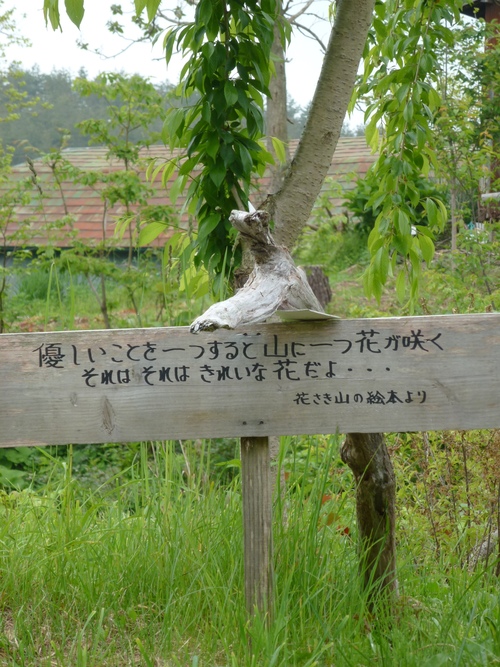 優しいことを一つすると山に一つ花が咲く
それは それは きれいな花だよ・・・
花さき山の絵本より